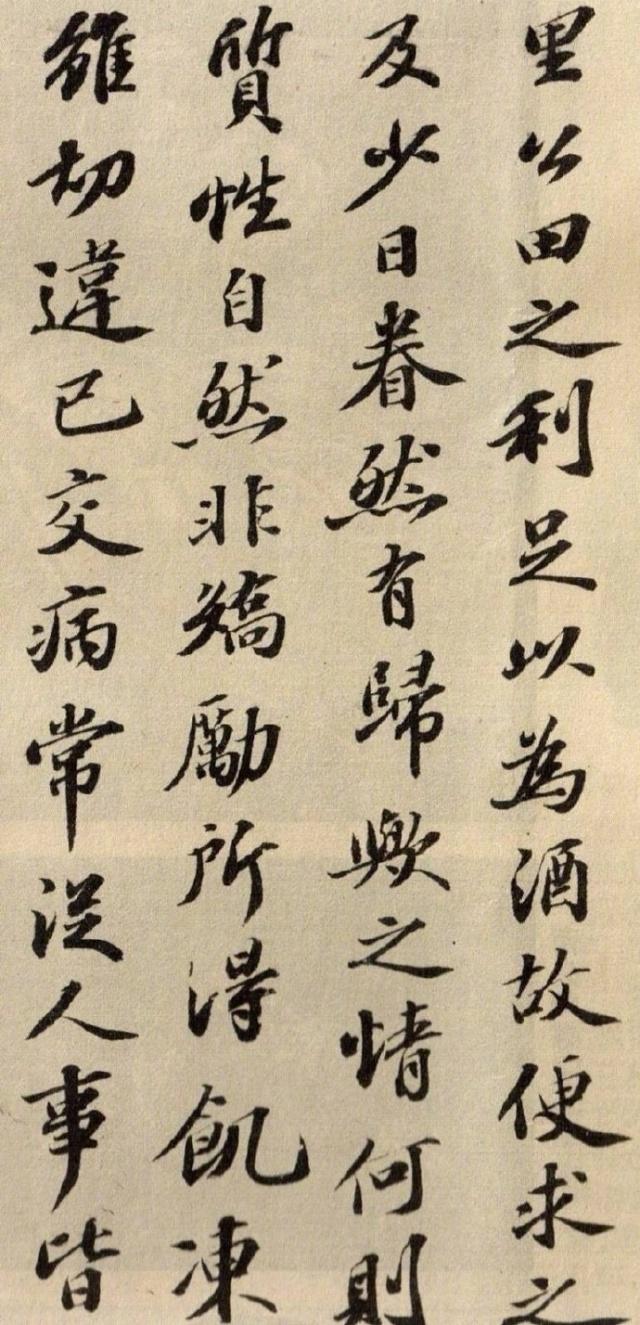 里公田之利足以為酒故便求之
及少日眷然有歸歟之情何則
質性自然非矯勵所得飢凍
雖切違己交病常從人事皆